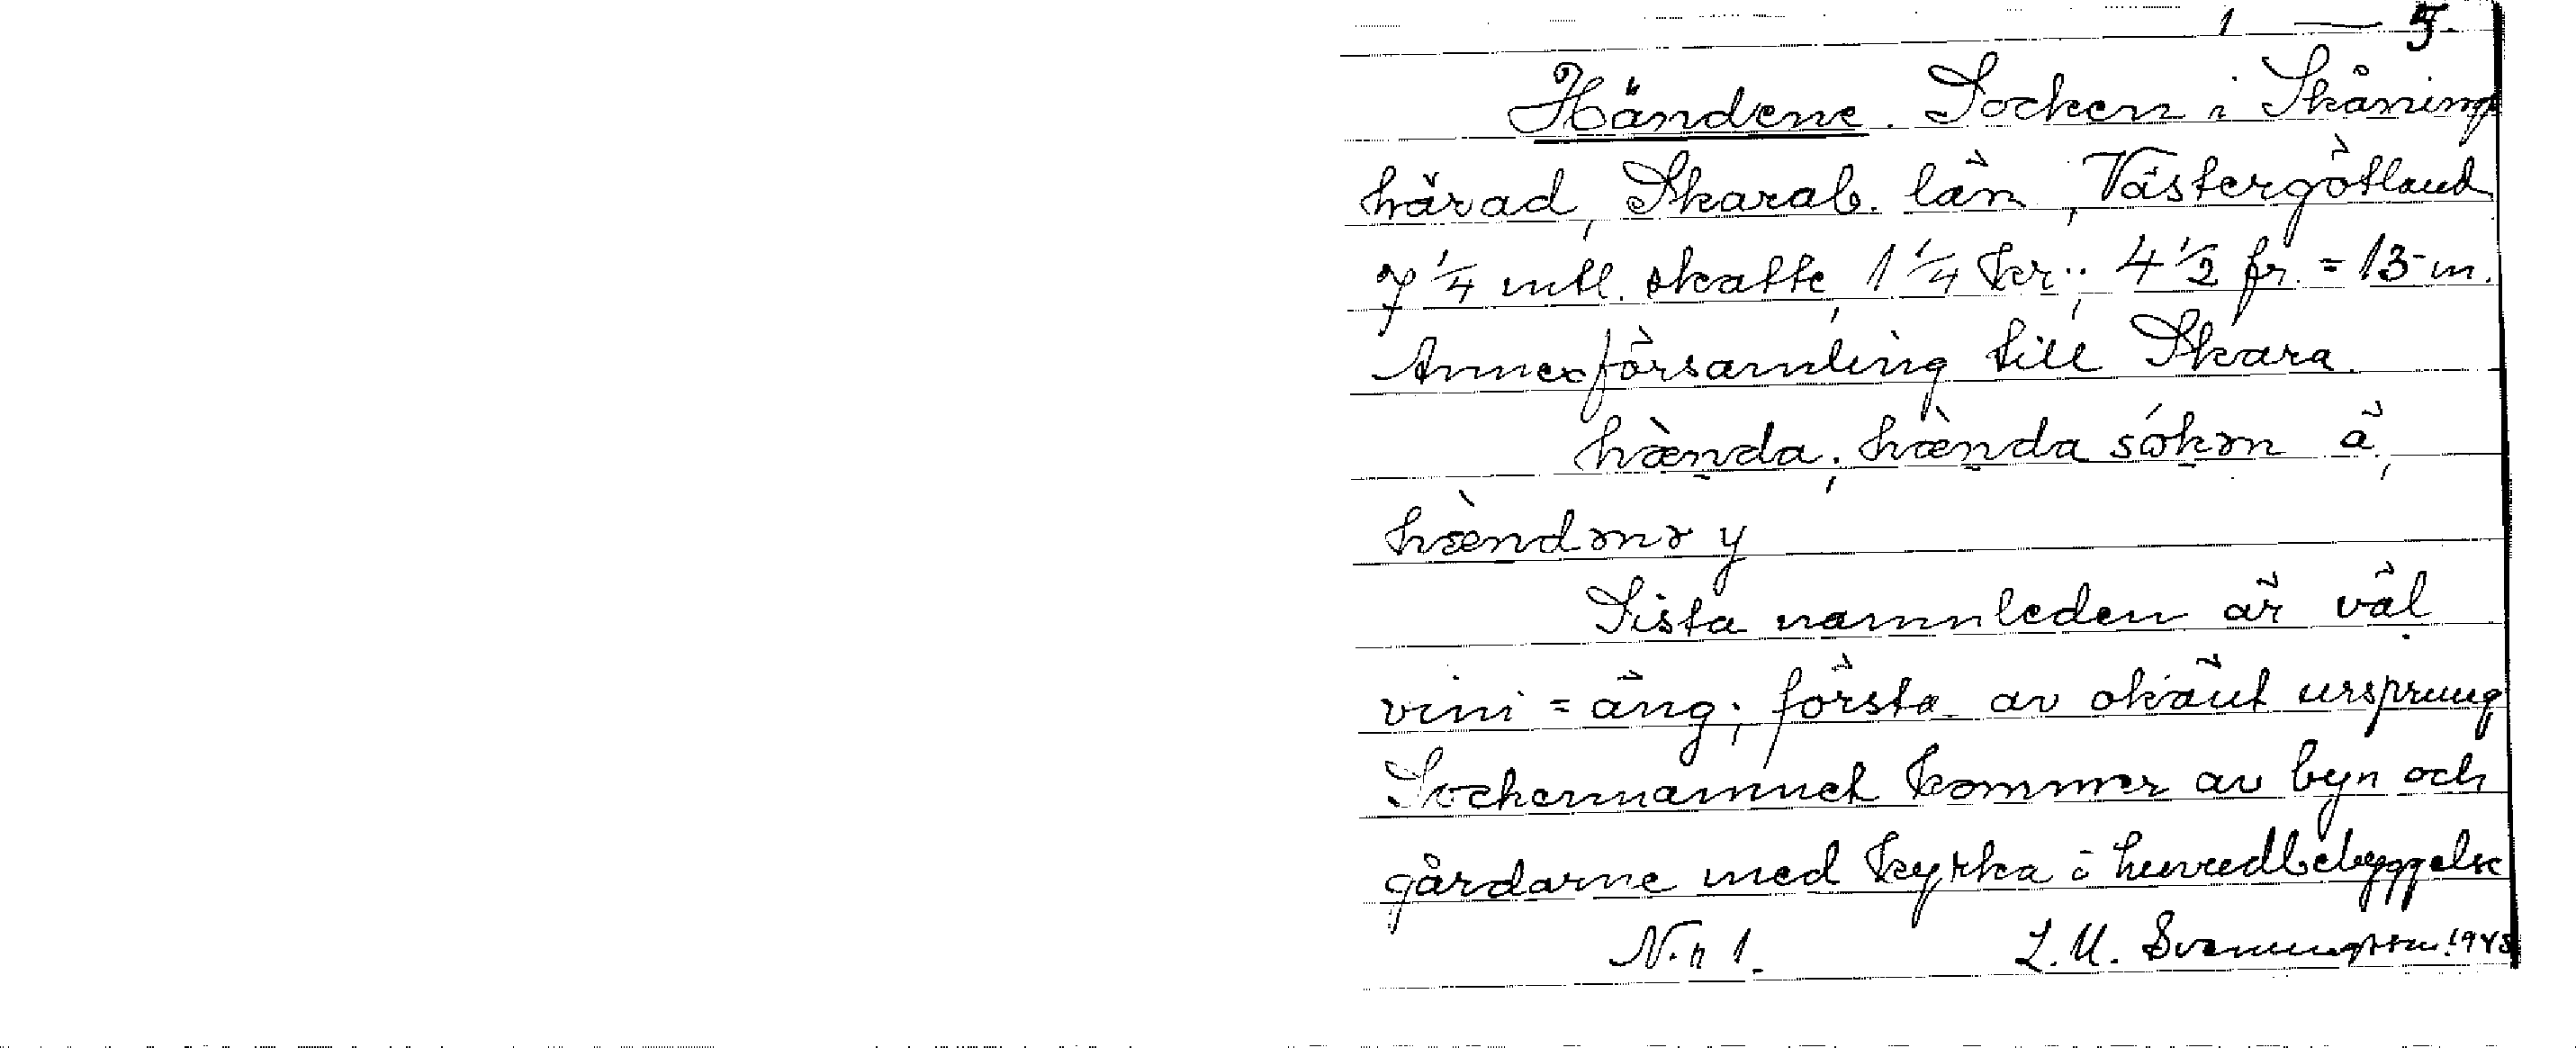 1 — 5.
Händene. Socken i Skånings
härad, Skarab. län, Västergötland
7 1/4 mtl. skatte, 1 1/4 kr.; 4 1/2 fr. = 13 m.
Annexförsamling till Skara.
hæ̀nda; hæ̀nda sókən ä,
hæ̀ndənə y
Sista namnleden är väl
vini = äng; första av okänt ursprung
Sockennamnet kommer av byn och
gårdarne med kyrka i huvudbebyggelse
N. n 1. L. U. Svenungsson.